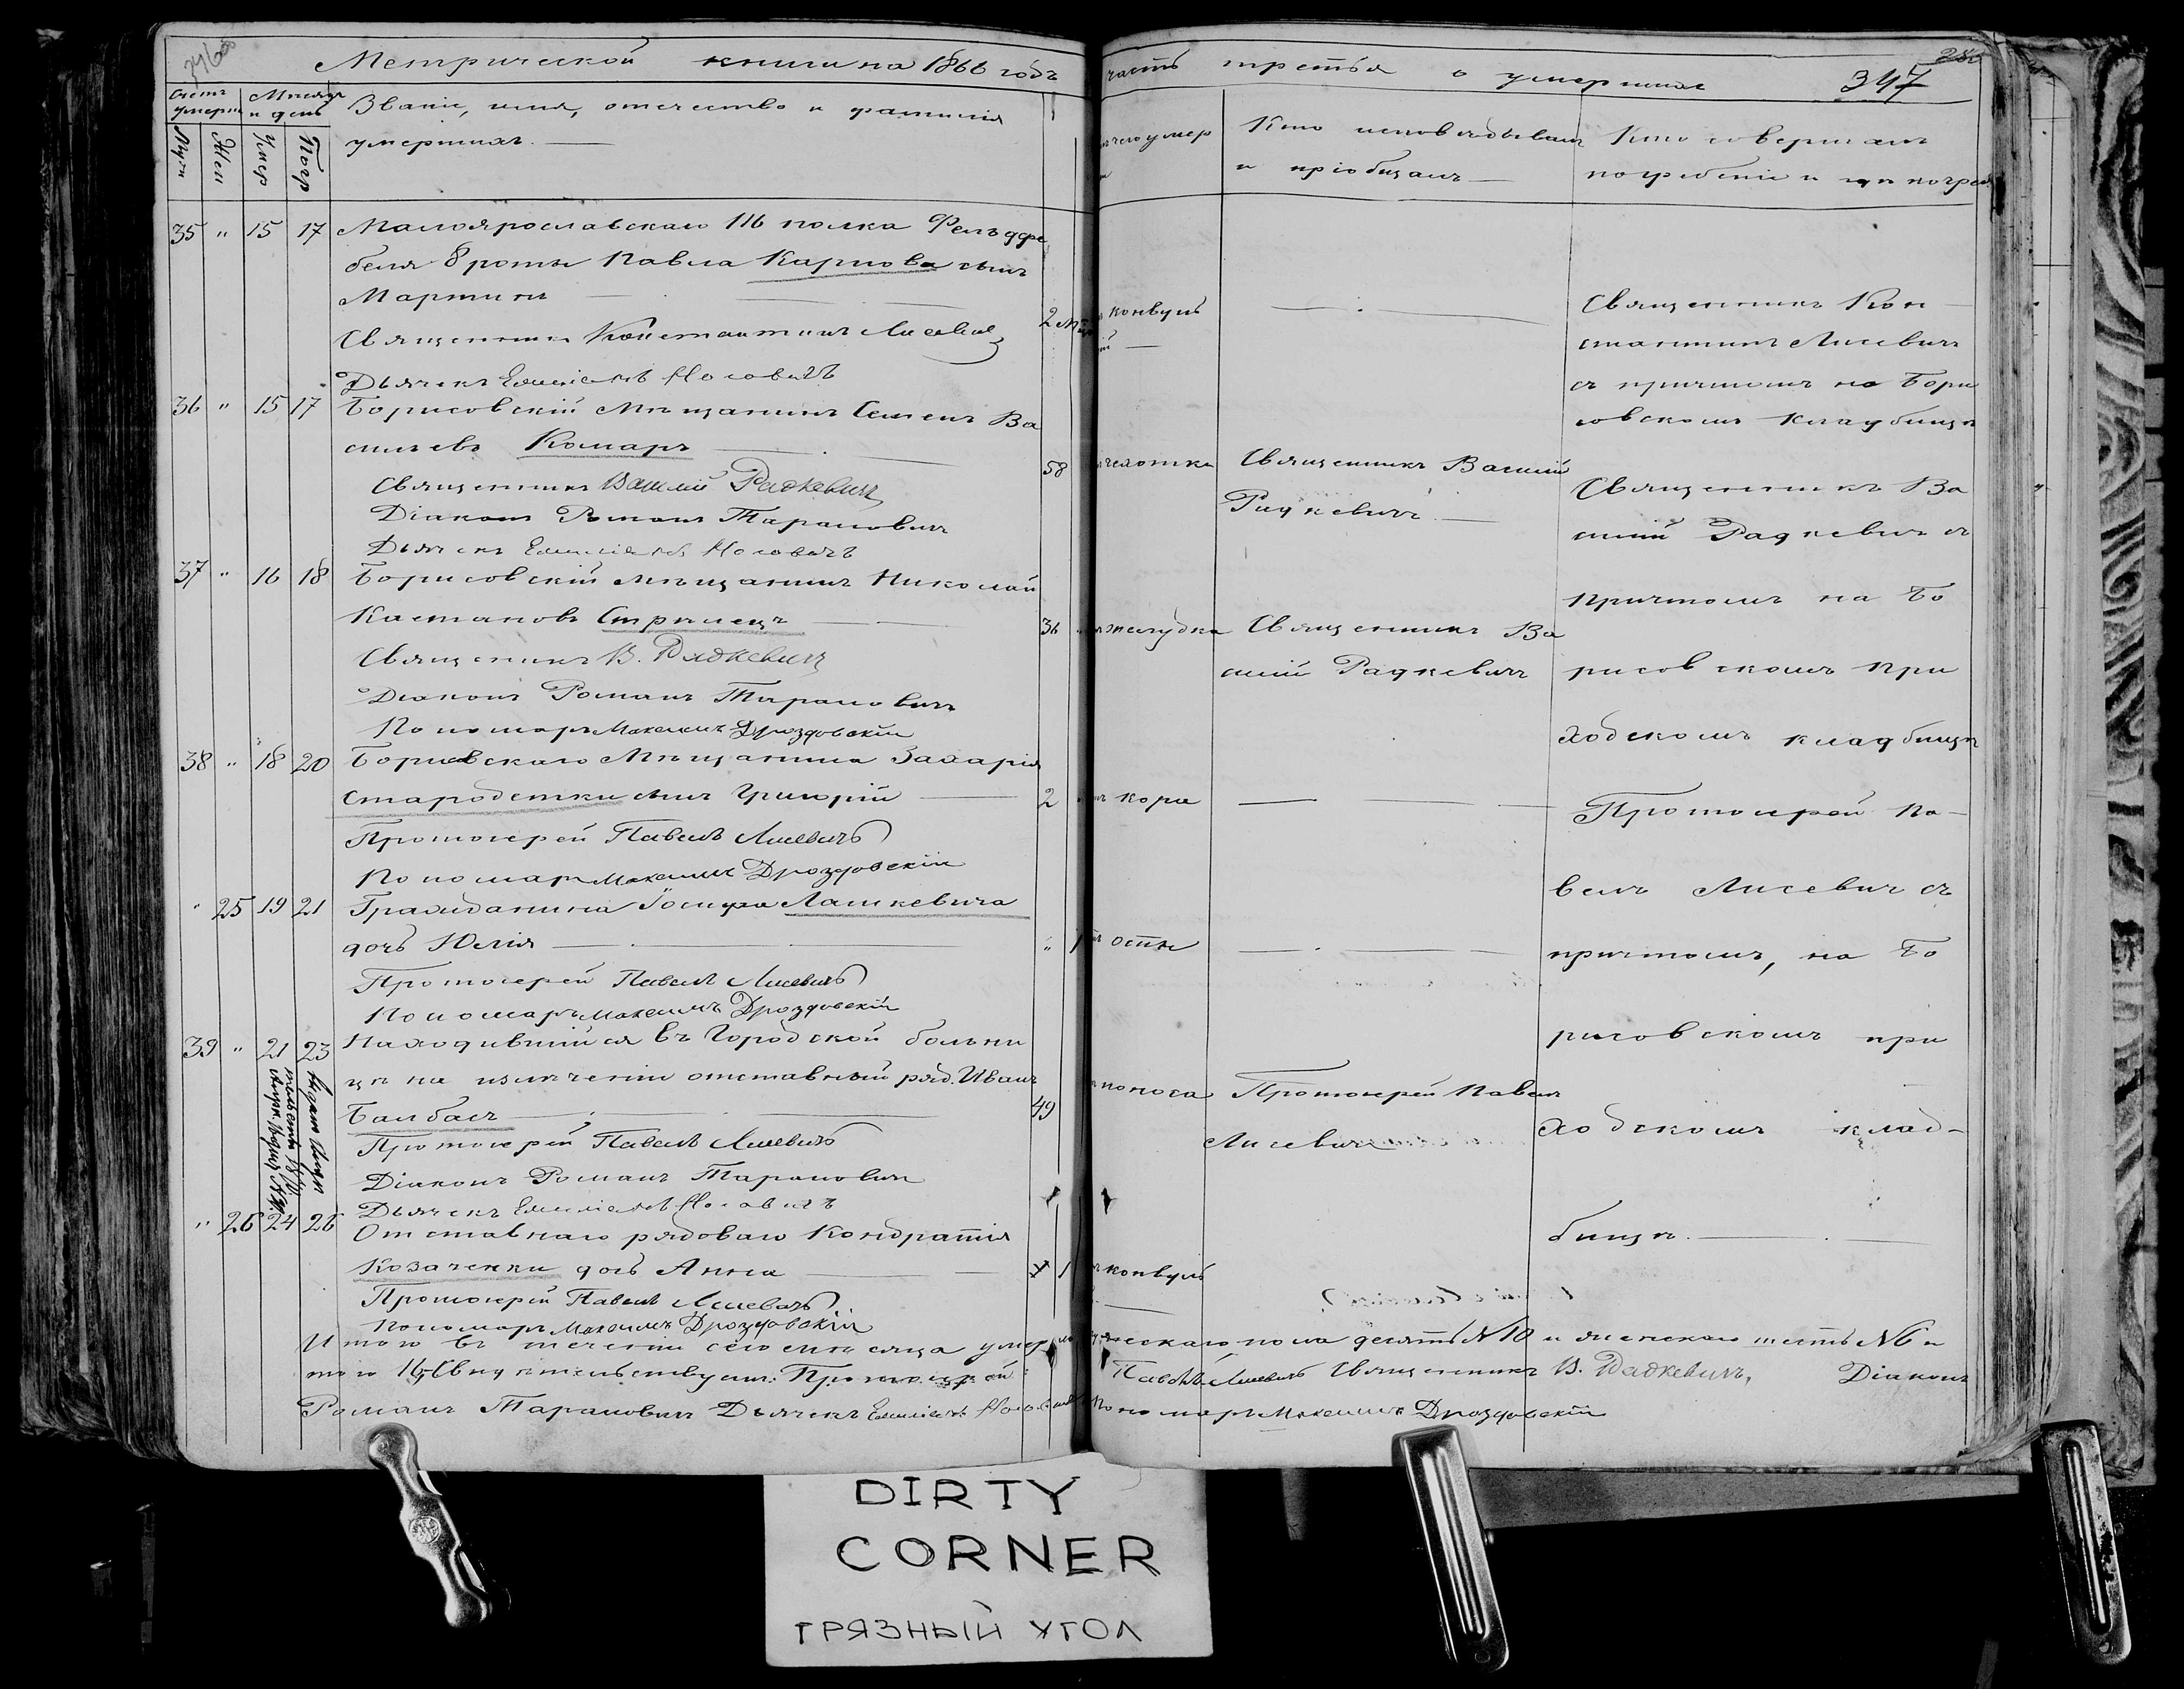 Метрической книги на 1866 годъ
часть третья о умершихъ 347
Счетъ умерш
Месяцъ и день
Званіе, имя, отчество и фамилія
умершихъ. —
Муж
Жен
Умер
Погр
чего умер
Кто исповядывалъ
и пріобщалъ —
Кто совершалъ
погребеніе и где погреб
35 " 15 17 Малоярославскаго 116 полка Фельдфе
беля 8 роты Павла Карпова сынъ
Мартинъ — 2
конвуль
Священникъ Константинъ Лисевичъ
Дьячекъ Емиліанъ Носовичъ
Священникъ Кон
стантинъ Лисевичъ
съ причтомъ на Бори
совскомъ кладбищѣ
36 " 15 17 Борисовскій Мѣщанинъ Семенъ Ва
сильевъ Комаръ — 58
чахотки
Священникъ Василій
Радкевичъ —
Священникъ Василій Радкевичъ
Діаконъ Романъ Тарановичъ
Дьячекъ Емиліанъ Носовичъ
Священникъ Ва
силій Радкевичъ съ
причтомъ на Бо
рисовскомъ при
ходскомъ кладбищѣ
37 " 16 18 Борисовскій Мѣщанинъ Николай
Кастановъ Стрилецъ — 36
желудка
Священникъ Ва
силій Радкевичъ
Священникъ В. Радкевичъ
Діаконъ Романъ Тарановичъ
Пономарь Максимъ Дроздовскій
38 " 18 20 Борисовскаго Мѣщанина Захарія
Стародетки сынъ Григорій — 2
кори
Протоіерей Павелъ Лисевичъ
Пономарь Максимъ Дроздовскій
Протоіерей Па-
велъ Лисевичъ съ
причтомъ, на Бо
рисовскомъ при
ходскомъ клад-
бищѣ. —
" 25 19 21 Гражданина Іосифа Лашкевича
дочь Юлія — " 1
оспы
Протоіерей Павелъ Лисевичъ
Пономарь Максимъ Дроздовскій
39 " 21 23 Находившійся въ Городской больни
цѣ на излеченіи отставный ряд. Иванъ
Балбасъ — 49
поноса
Протоіерей Павелъ
Лисевичъ
Протоіерей Павелъ Лисевичъ
Діаконъ Романъ Тарановичъ
Дьячекъ Емиліанъ Носовичъ
" 26 24 26 Отставнаго рядоваго Кондратія
Козаченки дочь Анна — 1
конвуль
Протоіерей Павелъ Лисевичъ
Пономарь Максимъ Дроздовскій
Итого въ теченіи сего месяца умерло мужескаго пола десять № 10 и женскаго шесть № 6 и
того 16. Свидѣтельствуемъ: Протоіерей Павелъ Лисевичъ Священникъ В. Радкевичъ, Діаконъ
Романъ Тарановичъ Дьячекъ Емиліанъ Носовичъ Пономарь Максимъ Дроздовскій
DIRTY
CORNER
ГРЯЗНЫЙ УГОЛ